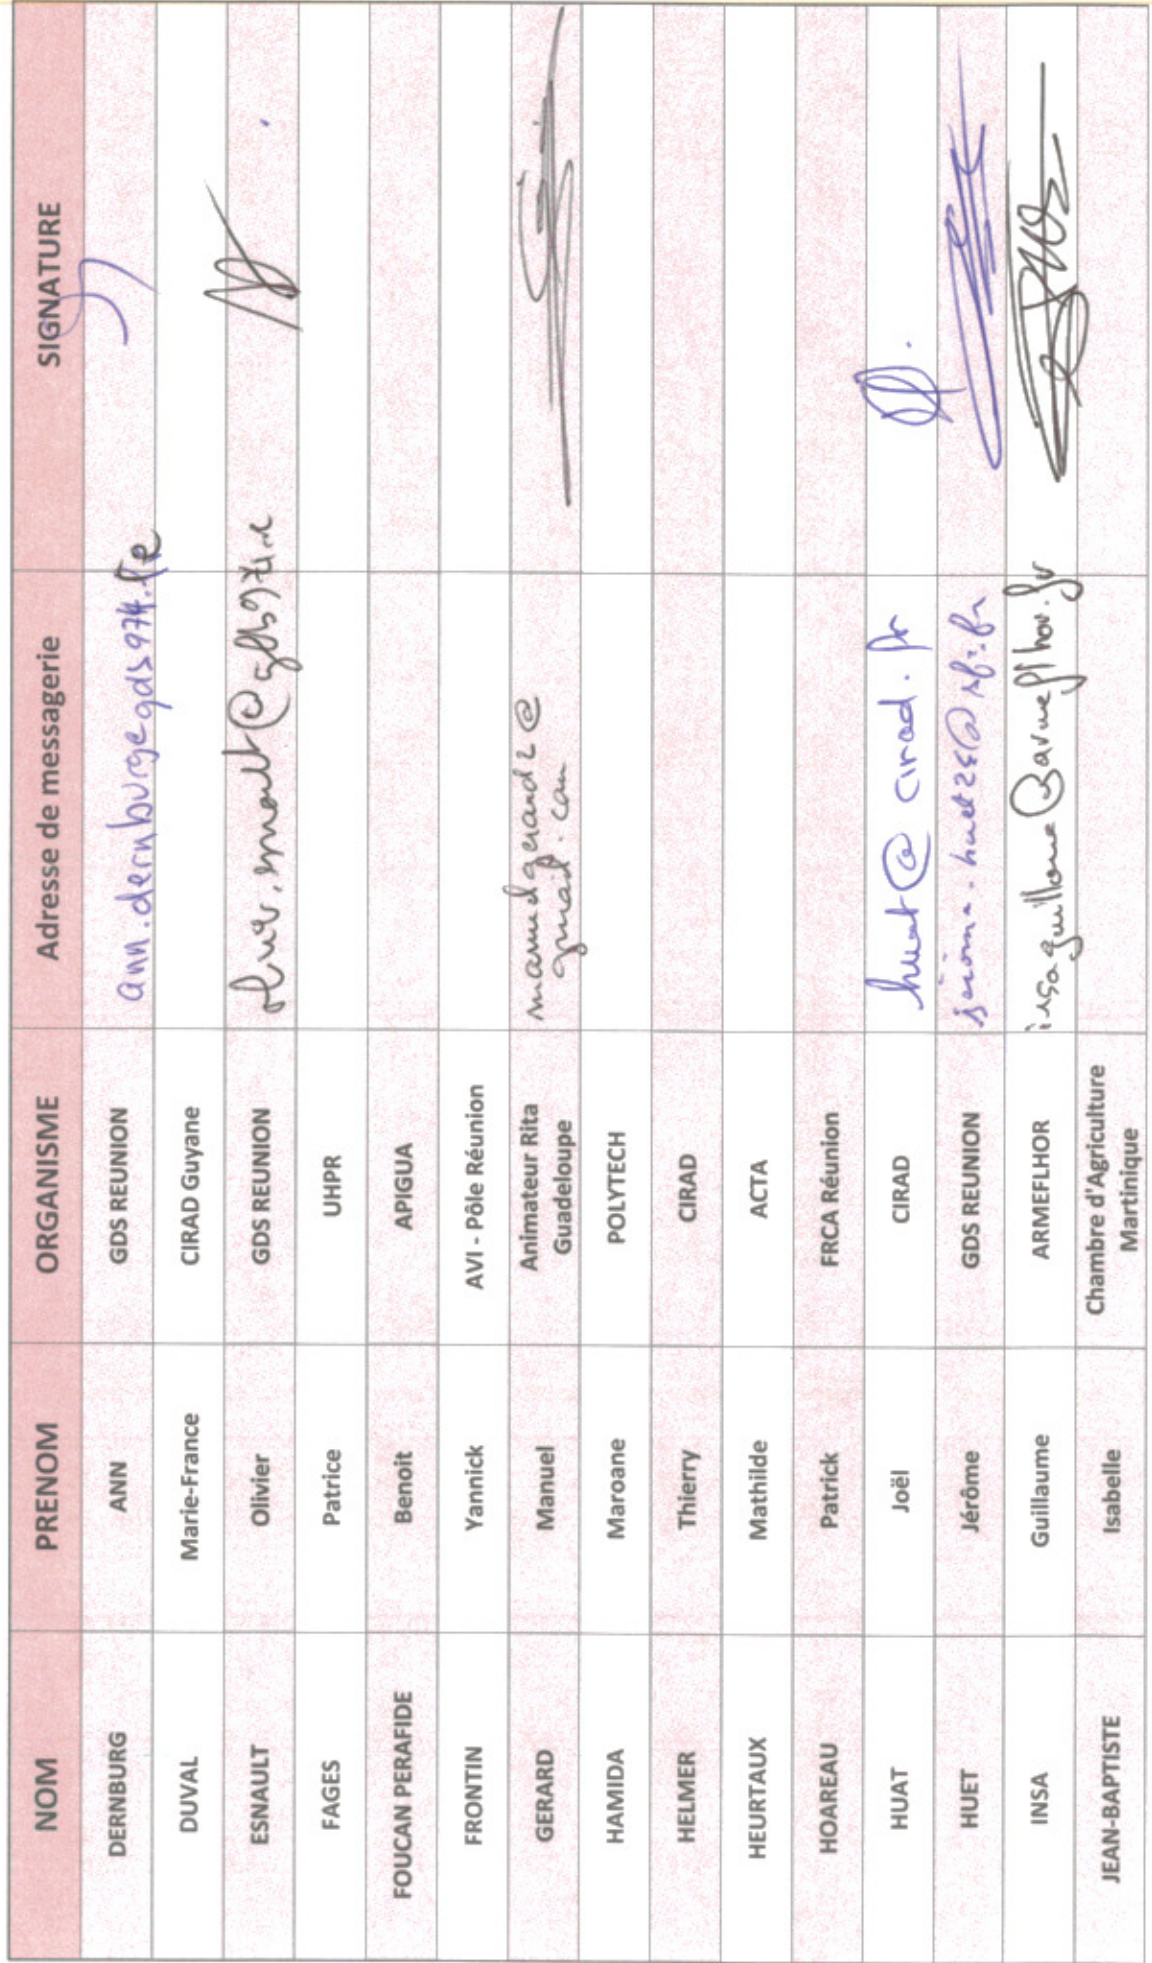 NOM PRENOM ORGANISME Adresse de messagerie SIGNATURE
DERNBURG ANN GDS REUNION ann.dernburg@gds974.re
DUVAL Marie-France CIRAD Guyane
ESNAULT Olivier GDS REUNION
FAGES Patrice UHPR
FOUCAN PERAFIDE Benoit APIGUA
FRONTIN Yannick AVI - Pôle Réunion
GERARD Manuel Animateur Rita manuelgerard2@
Guadeloupe gmail.com
HAMIDA Maroane POLYTECH
HELMER Thierry CIRAD
HEURTAUX Mathilde ACTA
HOAREAU Patrick FRCA Réunion
HUAT Joël CIRAD huat@cirad.fr
HUET Jérôme GDS REUNION
INSA Guillaume ARMEFLHOR
JEAN-BAPTISTE Isabelle Chambre d'Agriculture
Martinique